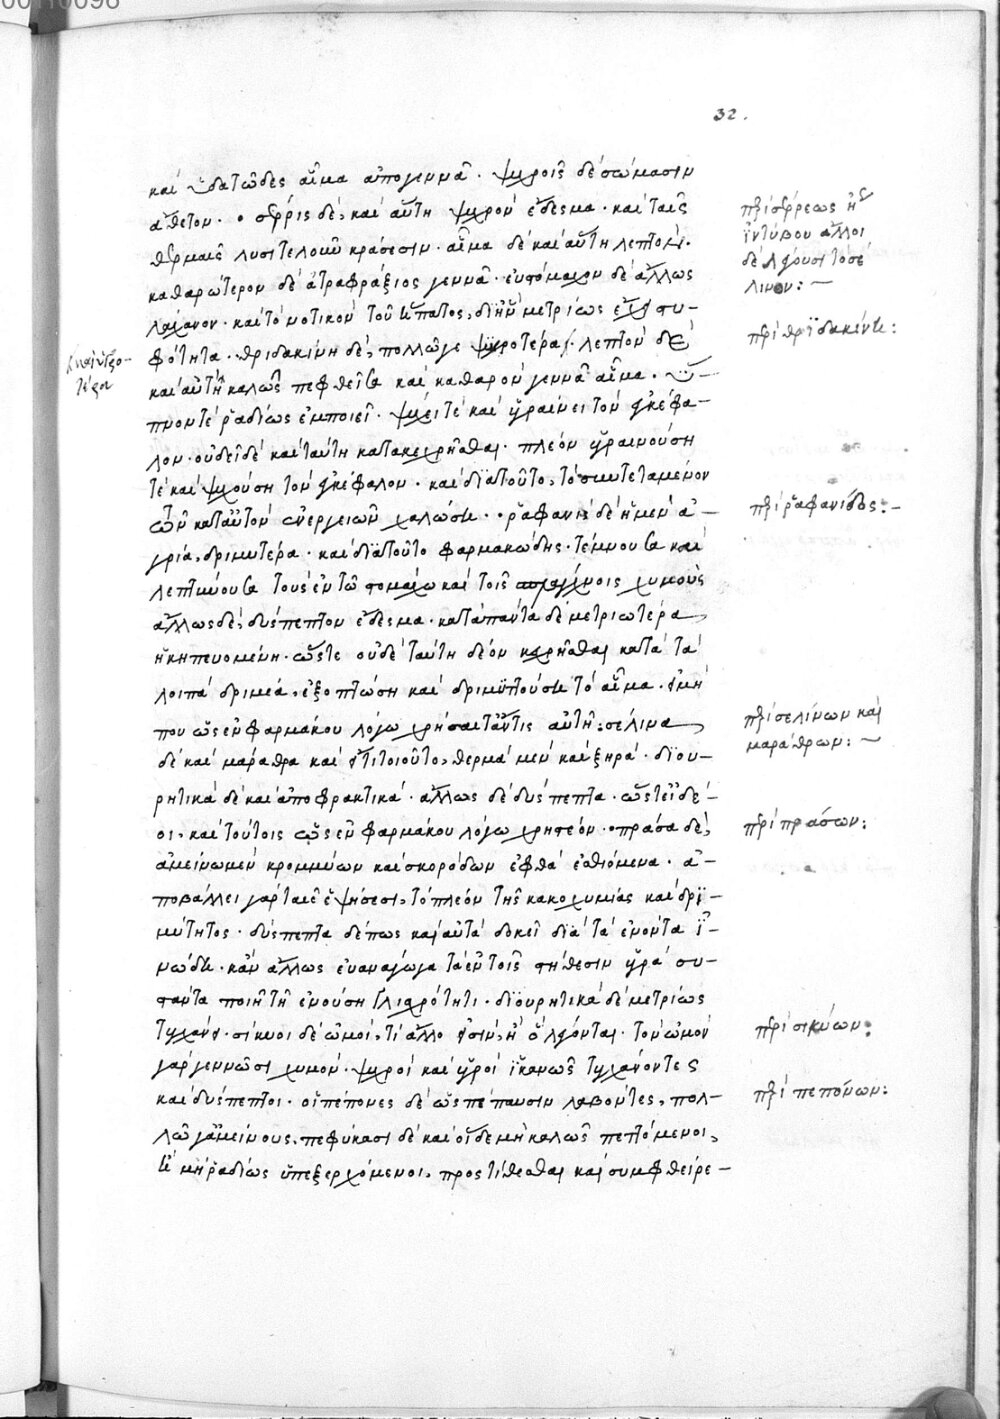 00110098
32.
καὶ ὑδατῶδες αἷμα ἀπογεννᾶ. ψυχροῖς δέ σώμασιν
ἄθετον. ὁ σέρρις δέ, καὶ αὕτη ψυχρὸν ἔδεσμα. καὶ ταῖς
θερμαῖς λυσιτελοῦν κράσεσιν. αἷμα δέ καὶ αὕτη λεπτὸν.
καθαρώτερον δέ ἀτραφράξιος γεννᾶ. εὐστόμαχον δέ ἄλλως
λάχανον. καὶ τὸ νοτικὸν τοῦ ἥπατος, δι' ἣν μετρίως ἔχει στυ-
φότητα. θριδακίνη δέ, πολλῶ γε ψυχροτέρα. λεπτὸν δὲ
καὶ αὐτὴ καλῶς πεφθεῖσα καὶ καθαρὸν γεννᾶ αἷμα. ὕ-
πνον τέ ῥαδίως ἐμποιεῖ. ψύχει τέ καὶ ὑγραίνει τὸν ἐγκέφα-
λον. οὐ δεῖ δέ καὶ ταύτη κατακεχρῆσθαι. πλέον ὑγραινούση
τέ καὶ ψυχούση τὸν ἐγκέφαλον. καὶ διατοῦτο, τὸ συντεταμένον
τῶν κατ' αὐτὸν ἐνεργειῶν χαλώση. ῥάφανις δέ ἡ μέν ἀ-
γρία, δριμυτέρα. καὶ διατοῦτο φαρμακώδης. τέμνουσα καὶ
λεπτύνουσα τοὺς ἐν τῶ στομάχω καὶ τοῖς χυμοὺς
ἄλλως δέ, δύσπεπτον ἔδεσμα. κατὰ πάντα δέ μετριωτέρα
ἡ κηπευομένη. ὥστε οὐδέ ταύτη δέον χρῆσθαι κατὰ τὰ
λοιπὰ δριμέα, ἐξοπτώση καὶ δριμυττούση τὸ αἷμα. εἰ μή
που ὡς ἐν φαρμάκου λόγω χρήσαιτ' ἄν τις αὐτῆ: σέλινα
δέ καὶ μάραθρα καὶ εἴ τι τοιοῦτο, θερμὰ μέν καὶ ξηρά. διου-
ρητικὰ δέ καὶ ἀποφρακτικά. ἄλλως δέ δύσπεπτα. ὥστ' εἰ δέ-
οι, καὶ τούτοις ὡς ἐν φαρμάκου λόγω χρηστέον. πράσα δέ,
ἀμείνω μέν κρομμύων καὶ σκορόδων ἑφθὰ ἐσθιόμενα. ἀ-
ποβάλλει γὰρ ταῖς ἑψήσεσι, τὸ πλέον τῆς κακοχυμίας καὶ δρι-
μύτητος. δύσπεπτα δέ πως καὶ αὐτὰ δοκεῖ διὰ τὰ ἐνόντα ἰ-
νώδη. κἂν ἄλλως εὐανάγωγα τὰ ἐν τοῖς στήθεσιν ὑγρὰ συ-
στάντα ποιῆ τῆ ἐνούση γλισχρότητι. διουρητικὰ δέ μετρίως
τυγχάνει. σίκυοι δέ ὠμοί, τί ἄλλο εἰσίν, ἢ ὃ λέγονται. τὸν ὠμὸν
γὰρ γεννῶσι χυμόν. ψυχροί καὶ ὑγροί ἱκανῶς τυγχάνοντες
καὶ δύσπεπτοι. οἱ πέπονες δέ ὡς πέπανσιν λαβόντες, πολ-
λῶ γ' ἀμείνους. πεφύκασι δέ καὶ οἵδε μὴ καλῶς πεττόμενοι,
ἢ μὴ ῥαδίως ὑπεξερχόμενοι, προστίθεσθαι καὶ συμφθείρε-
περὶ σέρρεως ἢ
ἰντύβου ἄλλοι
δέ λέγουσι τὸ σέ
λινον:
περὶ θριδακίνης:
περὶ ῥαφανίδος:
περὶ σελίνων καὶ
μαράθρων:
περὶ πράσων:
περὶ σικύων:
περὶ πεπόνων: